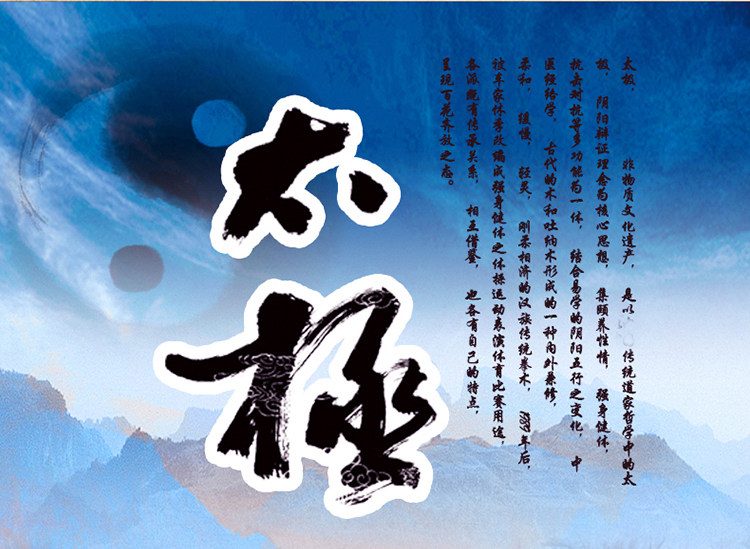 太極
太极，非物质文化遗产，是以 传统道家哲学中的太
极，阴阳辩证理念为核心思想，集颐养性情，强身健体，
技击对抗等多功能为一体，结合易学的阴阳五行之变化，中
医经络学，古代的术和吐纳术形成的一种内外兼修，
柔和，缓慢，轻灵，刚柔相济的汉族传统拳术，年后，
被车家体委改编成强身健体之体操运动表演体育比赛用途，
各派既有传承关系，相互借鉴，也各有自己的特点，
呈现百花齐放之态。